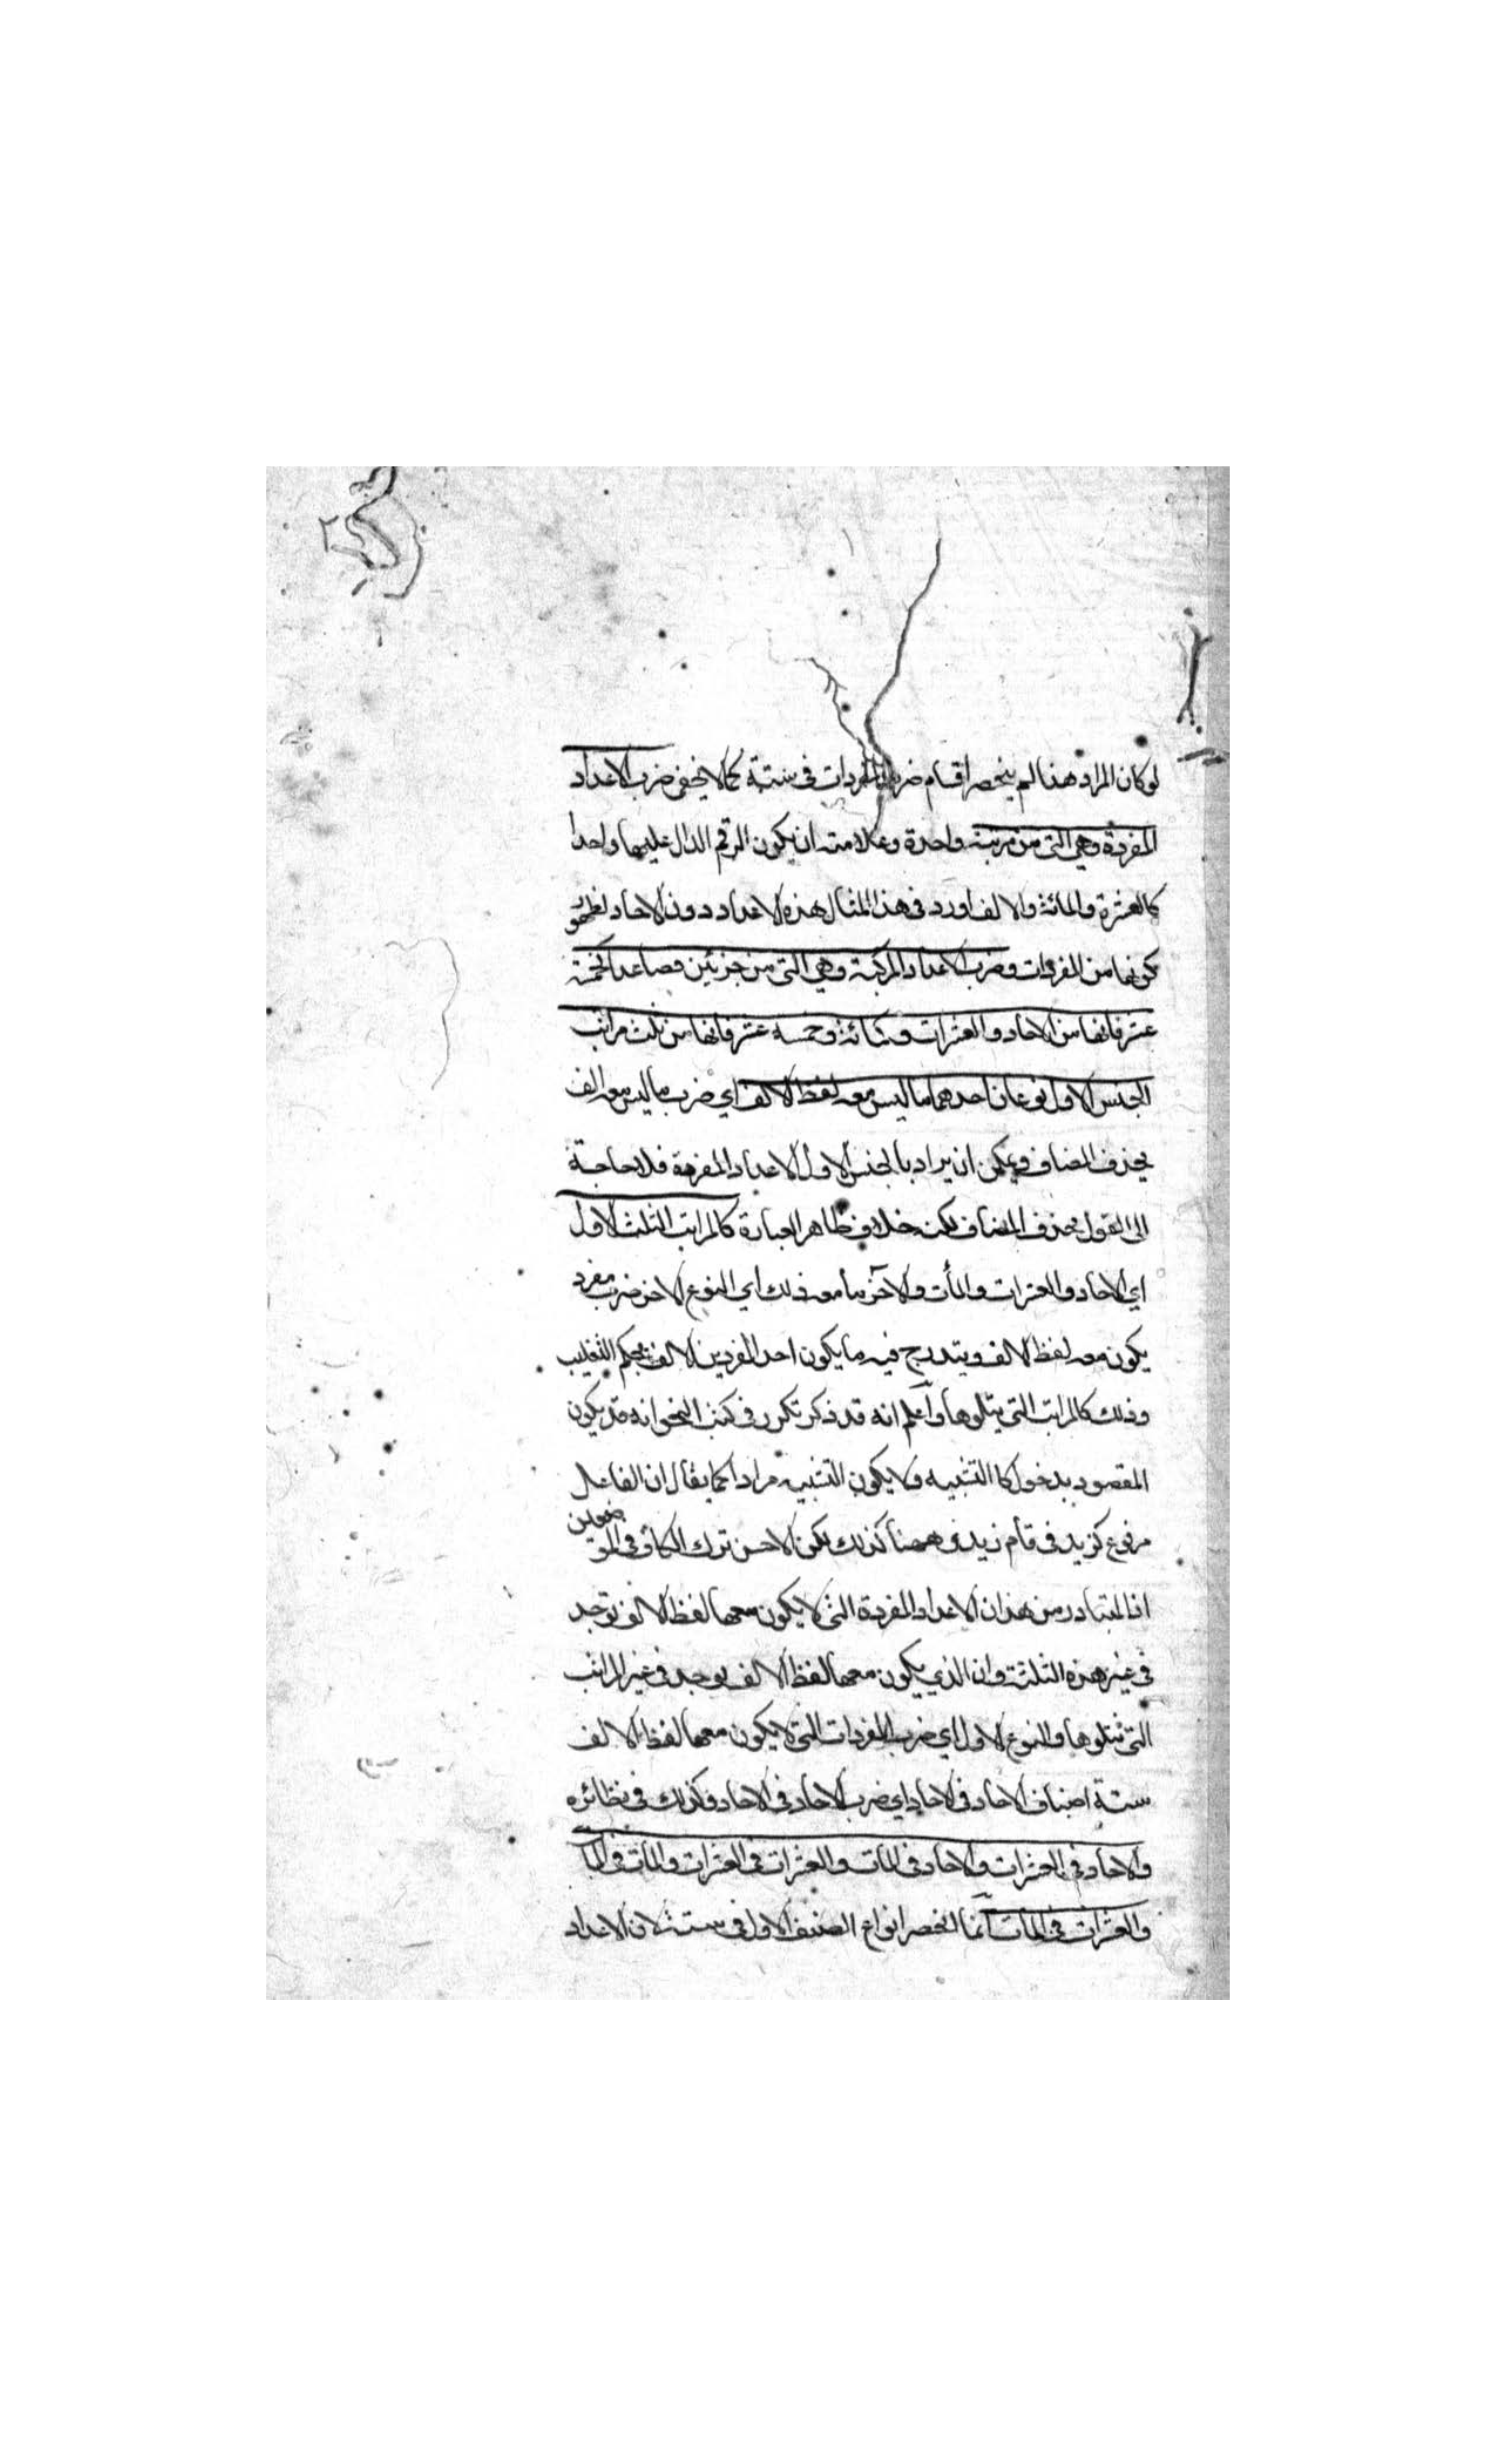 لو كان المراد هذا لم ينحصر اقسام ضرب المفردات في ستة كما لا يخفى ضرب الاعداد
المفردة وهي التي من مرتبة واحدة وعلامته ان يكون الرقم الدال عليها واحدا
كالعشرة والمائة والالف اورد في هذا المثال هذه الاعداد دون الاحاد لظهور
كونها من المفردات وضرب الاعداد المركبة وهي التي من جزئين فصاعدا كخمسة
عشر فانها من الاحاد والعشرات وكمائة وخمسة عشر فانها من ثلث مراتب
الجنس الاول نوعان احدهما ما ليس معه لفظ الالف اي ضرب ما ليس معه الف
بحذف المضاف ويمكن ان يراد بالجنس الاول الاعداد المفردة فلا حاجة
الى القول بحذف المضاف لكنه خلاف ظاهر العبارة كالمراتب الثلث الاول
اي الاحاد والعشرات والمأت والآخر ما معه ذلك اي النوع الاخر ضرب مفرد
يكون معه لفظ الالف ويندرج فيه ما يكون احد المفردين الالف بحكم التغليب
وذلك كالمراتب التي يتلوها واعلم انه قد ذكر تكرر في كتب النحو انه قد يكون
المقصود بدخول كا التشبيه ولا يكون التشبيه مرادا كما يقال ان الفاعل
مرفوع كزيد في قام زيد وههنا كذلك لكن الاحسن ترك الكاف في الموضعين
اذ المتبادر من هذا ان الاعداد المفردة التي لا يكون معها لفظ الالف توجد
في غير هذه الثلثة وان الذي يكون معها لفظ الالف يوجد في غير المراتب
التي تتلوها والنوع الاول اي ضرب المفردات التي لا يكون معها لفظ الالف
ستة اصناف الاحاد في الاحاد اي ضرب الاحاد في الاحاد وكذلك في نظائره
والاحاد في العشرات والاحاد في المأت والعشرات في العشرات والمأت في المأ
والعشرات في المأت انما انحصر انواع الصنف الاول في ستة لان الاعداد